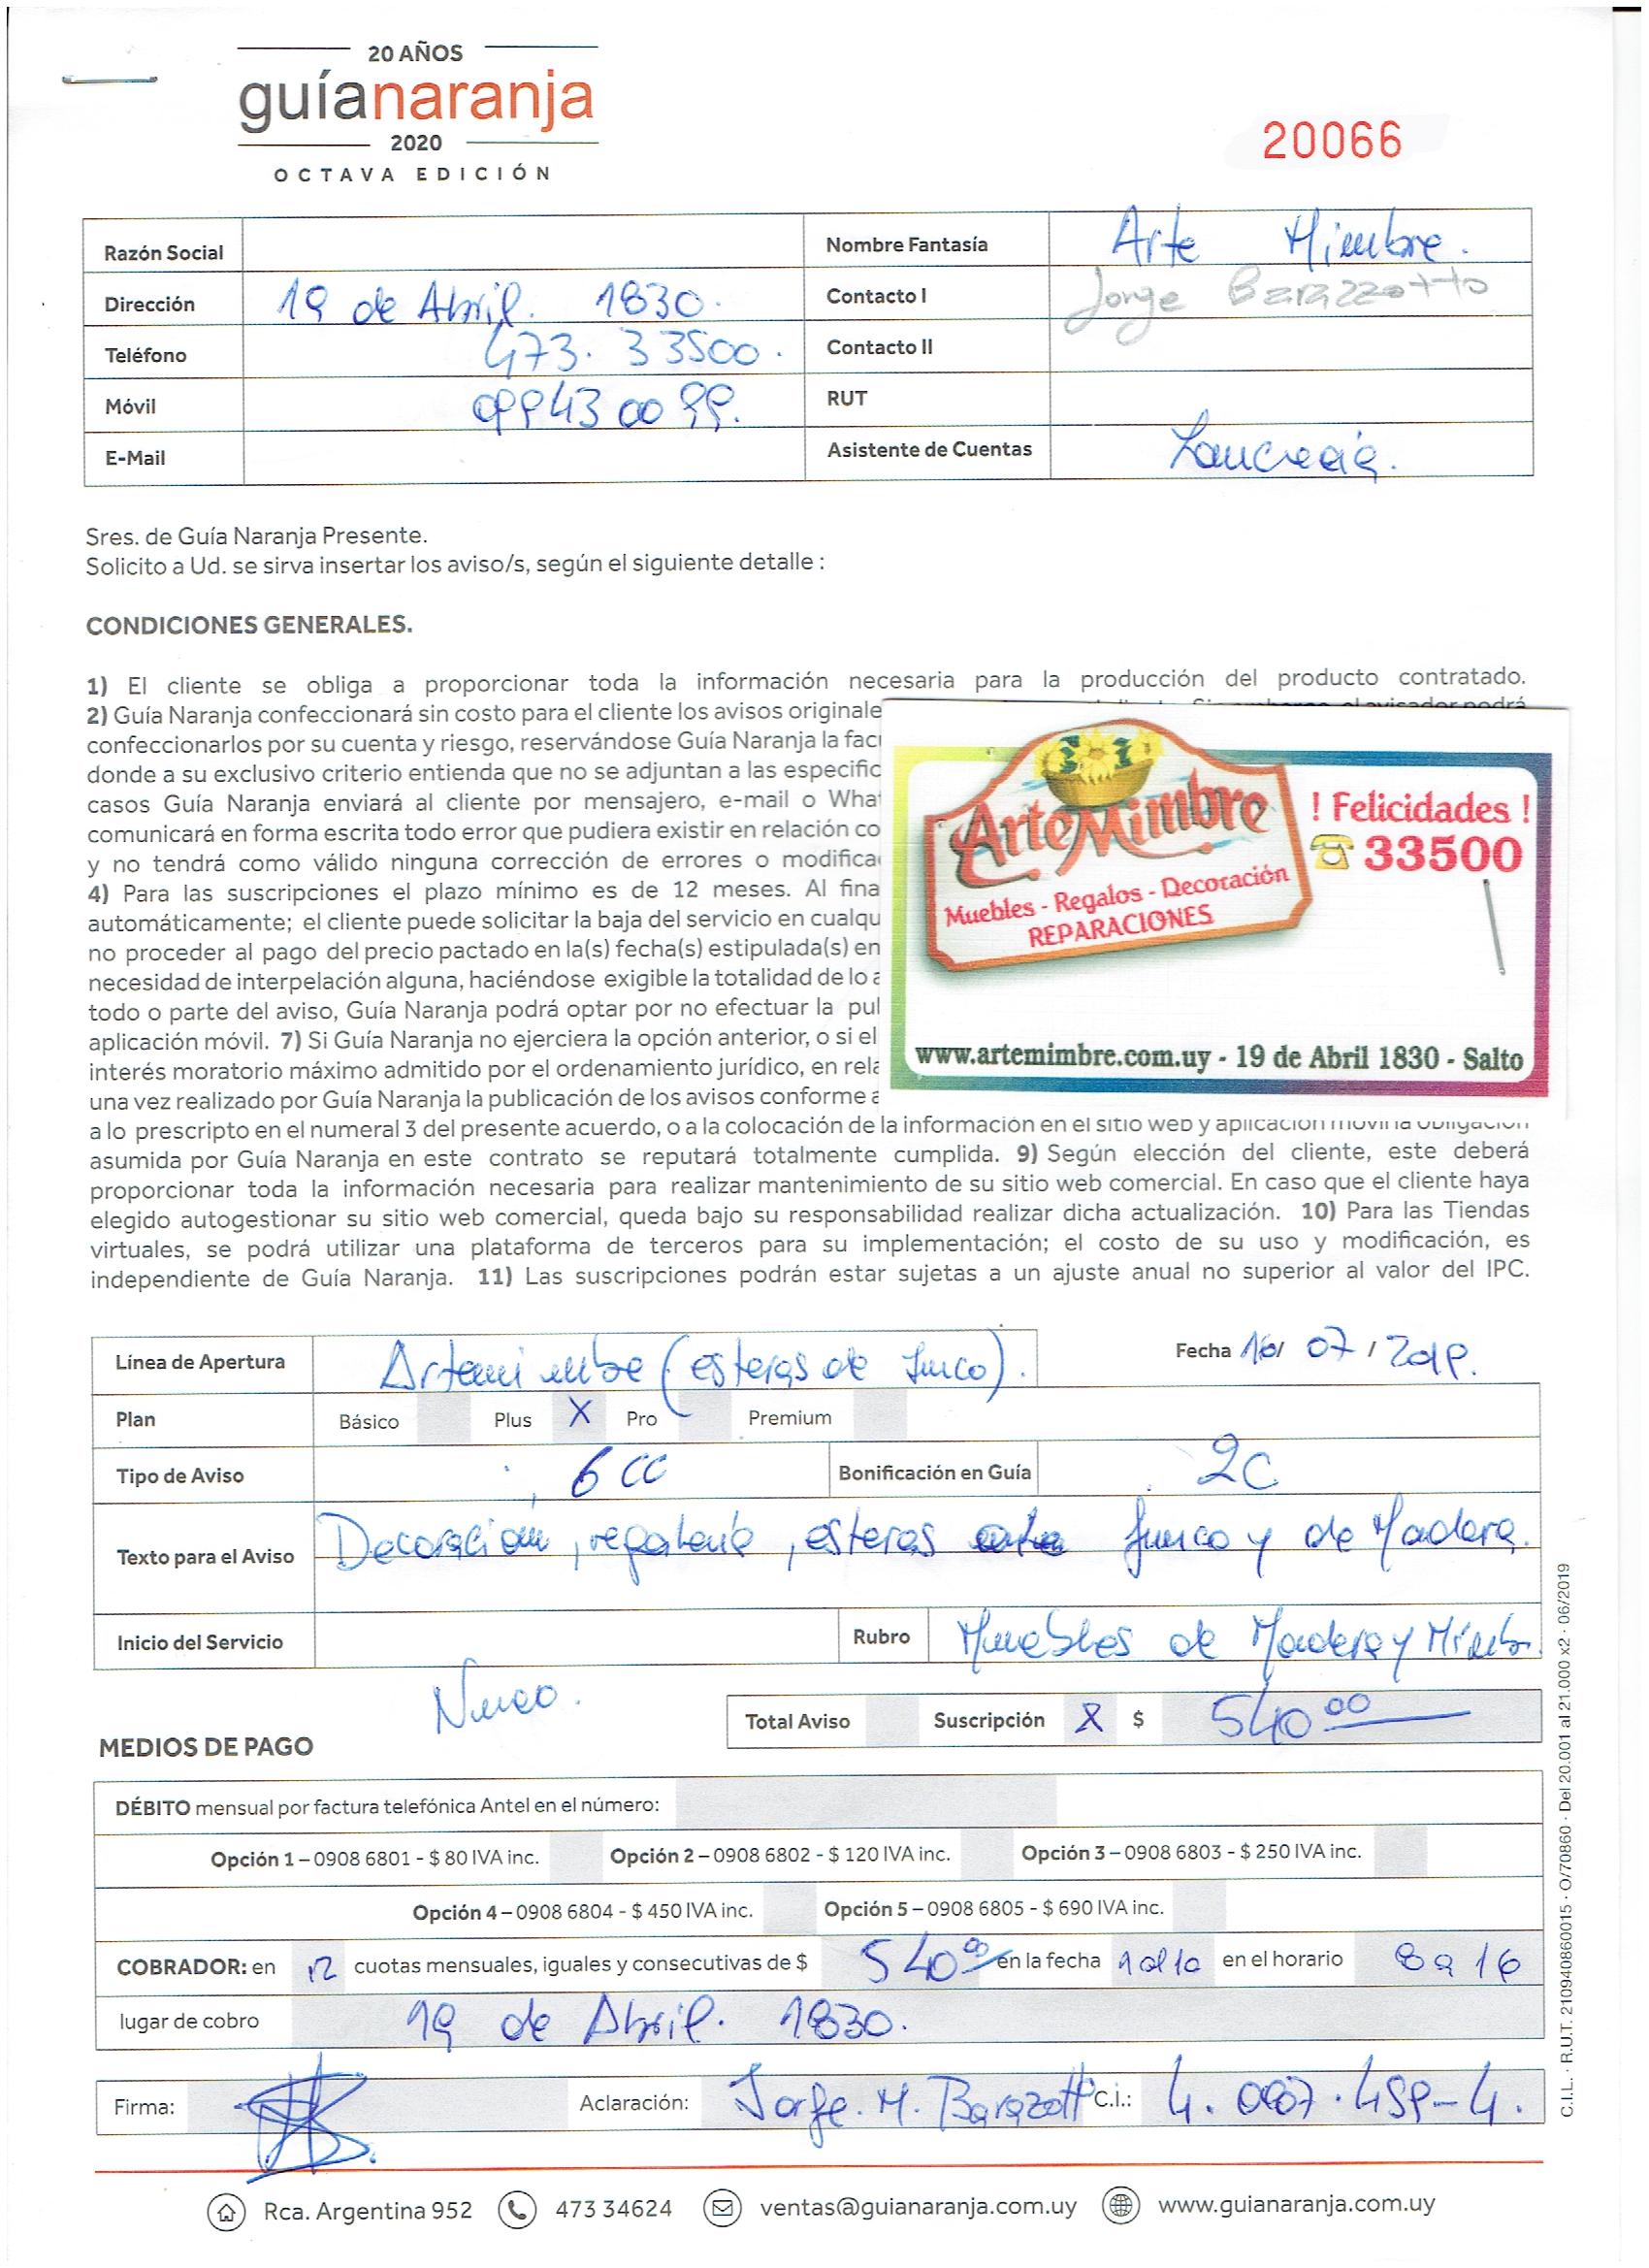 20 AÑOS
guíanaranja
2020
OCTAVA EDICIÓN
20066
Razón Social
Nombre Fantasía Arte Mimbre.
Dirección 19 de Abril. 1830.
Contacto I Jorge Barazzotto
Teléfono 473. 33500.
Contacto II
Móvil 099430099.
RUT
E-Mail
Asistente de Cuentas
Sres. de Guía Naranja Presente.
Solicito a Ud. se sirva insertar los aviso/s, según el siguiente detalle :
CONDICIONES GENERALES.
1) El cliente se obliga a proporcionar toda la información necesaria para la producción del producto contratado.
2) Guía Naranja confeccionará sin costo para el cliente los avisos originale
confeccionarlos por su cuenta y riesgo, reservándose Guía Naranja la fac
donde a su exclusivo criterio entienda que no se adjuntan a las especific
casos Guía Naranja enviará al cliente por mensajero, e-mail o What
comunicará en forma escrita todo error que pudiera existir en relación co
y no tendrá como válido ninguna corrección de errores o modifica
4) Para las suscripciones el plazo mínimo es de 12 meses. Al fina
automáticamente; el cliente puede solicitar la baja del servicio en cualqu
no proceder al pago del precio pactado en la(s) fecha(s) estipulada(s) en
necesidad de interpelación alguna, haciéndose exigible la totalidad de lo a
todo o parte del aviso, Guía Naranja podrá optar por no efectuar la pul
aplicación móvil. 7) Si Guía Naranja no ejerciera la opción anterior, o si el
interés moratorio máximo admitido por el ordenamiento jurídico, en rela
una vez realizado por Guía Naranja la publicación de los avisos conforme a
a lo prescripto en el numeral 3 del presente acuerdo, o a la colocación de la información en el sitio web y aplicación móvil la obligación
asumida por Guía Naranja en este contrato se reputará totalmente cumplida. 9) Según elección del cliente, este deberá
proporcionar toda la información necesaria para realizar mantenimiento de su sitio web comercial. En caso que el cliente haya
elegido autogestionar su sitio web comercial, queda bajo su responsabilidad realizar dicha actualización. 10) Para las Tiendas
virtuales, se podrá utilizar una plataforma de terceros para su implementación; el costo de su uso y modificación, es
independiente de Guía Naranja. 11) Las suscripciones podrán estar sujetas a un ajuste anual no superior al valor del IPC.
ArteMimbre
Muebles - Regalos - Decoración
REPARACIONES
! Felicidades !
33500
www.artemimbre.com.uy - 19 de Abril 1830 - Salto
Línea de Apertura Artemimbre (esteras de Junco).
Fecha 16/ 07 / 2019.
Plan Básico Plus X Pro Premium
Tipo de Aviso 6 CC Bonificación en Guía 2C
Texto para el Aviso Decoracion, regaleria, esteras junco y de Madera.
Inicio del Servicio
Rubro Muebles de Madera y Mimb.
Nuevo.
Total Aviso Suscripción X $ 540 00
MEDIOS DE PAGO
DÉBITO mensual por factura telefónica Antel en el número:
Opción 1 – 0908 6801 - $ 80 IVA inc. Opción 2 – 0908 6802 - $ 120 IVA inc. Opción 3 – 0908 6803 - $ 250 IVA inc.
Opción 4 – 0908 6804 - $ 450 IVA inc. Opción 5 – 0908 6805 - $ 690 IVA inc.
COBRADOR: en 12 cuotas mensuales, iguales y consecutivas de $ 540 00 en la fecha 1 al 10 en el horario 8 a 16
lugar de cobro 19 de Abril. 1830.
Firma: Aclaración: Jorge. M. Barazott C.I.: 4. 087. 459-4.
Rca. Argentina 952 473 34624 ventas@guianaranja.com.uy www.guianaranja.com.uy
C.I.L. · R.U.T. 210940860015 · O/70860 · Del 20.001 al 21.000 x2 · 06/2019